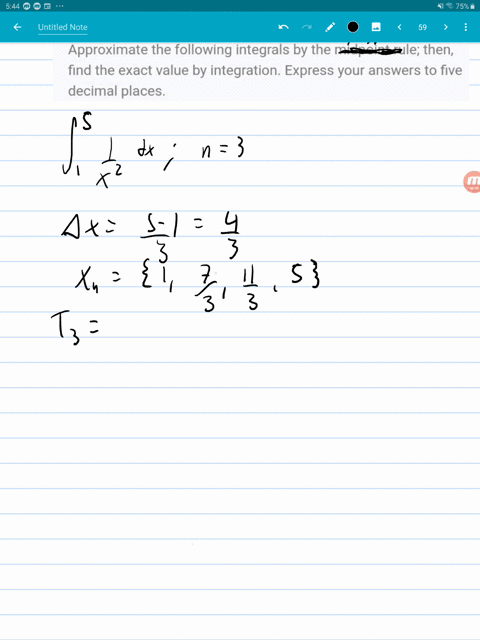 5:44 75%
Untitled Note 59
Approximate the following integrals by the rule; then,
find the exact value by integration. Express your answers to five
decimal places.
∫₁⁵ 1/x² dx ; n = 3
Δx = 5-1/3 = 4/3
xₙ = {1, 7/3, 11/3, 5}
T₃ =